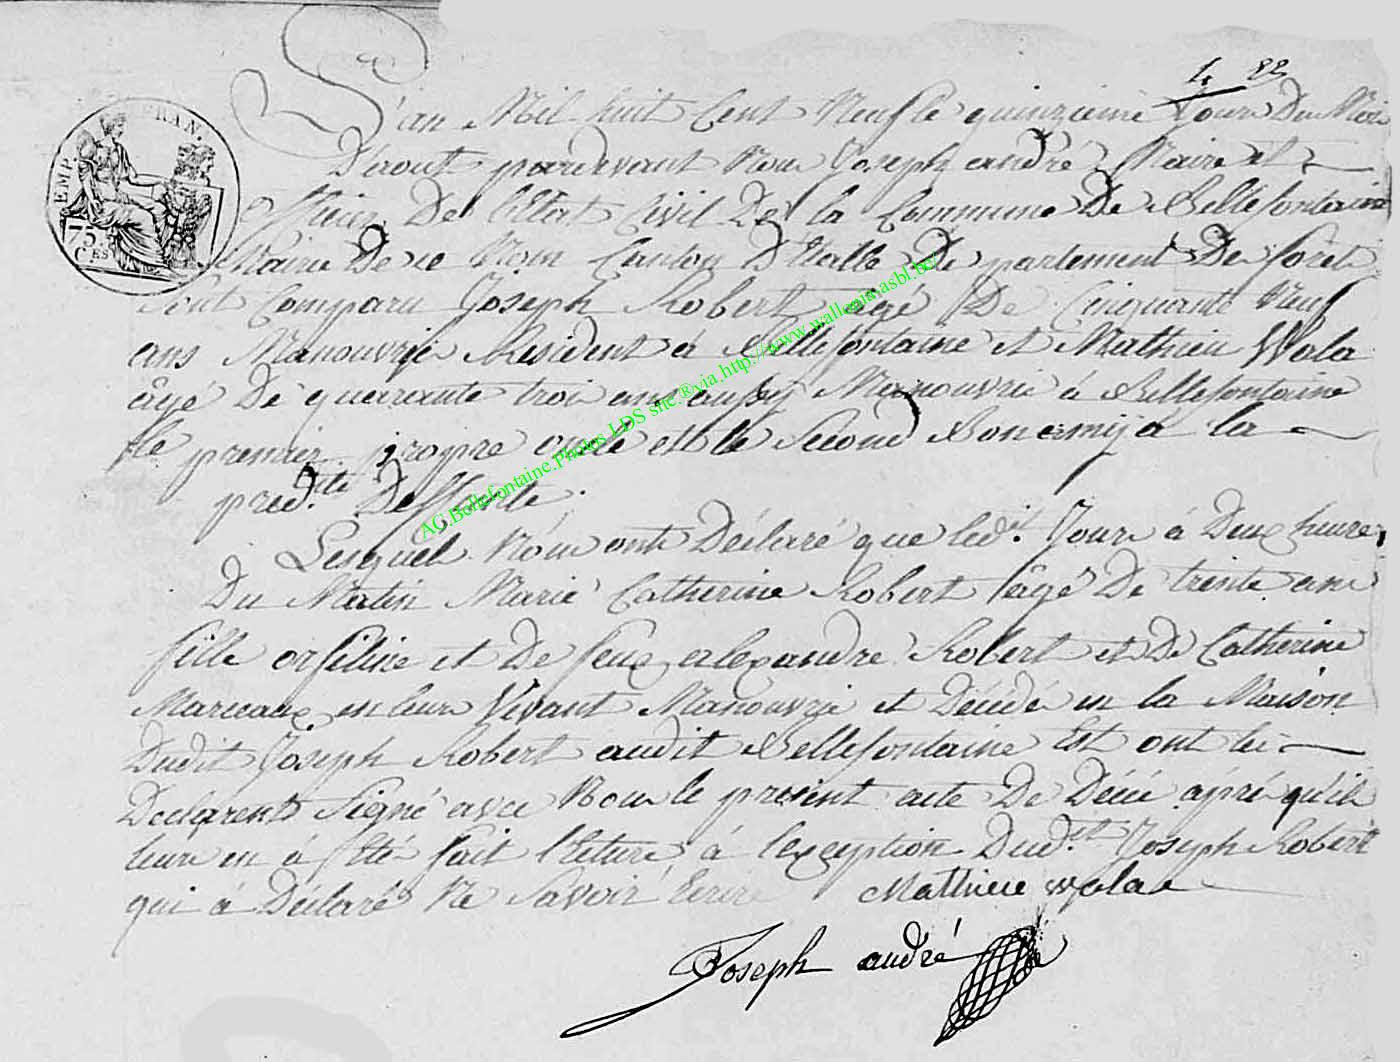 4 22
L'an Mil huit Cent Neuf le quinzieme Jour Du Mois
D'aout pardevant Nous Joseph andré Maire et
officier De l'Etat Civil De la Commune De Bellefontaine
Mairie De ce Nom Canton D'Etalle De partement De forêts
Sont Comparu Joseph Robert agé De Cinquante Neuf
ans Manouvrié Resident à Bellefontaine et Mathieu Wala
âgé De quarante trois ans aussy Manouvrié à Bellefontaine
le premier propre oncle et le Second Bon amij à la
pred.te Deffunte.
Lesquels Nous ont Déclaré que led.it Jour à Deux heures
Du Matin Marie Catherine Robert âgé De trente ans
fille orfeline et De feux alexandre Robert et De Catherine
Marceaux en leur Vivant Manouvrié et Décédé en la Maison
Dudit Joseph Robert audit Bellefontaine Est ont les
Declarents Signé avec Nous le present acte De Décé aprés qu'il
leurs en à Eté fait lecture à l'exception Dud.it Joseph Robert
qui à Déclaré Ne Savoir Ecrire Mathieu Wala
Joseph andré
EMP. FRAN.
75
CES
AC.Bellefontaine.Photos LDS snc.®via.http://www.wallonia.asbl.be/